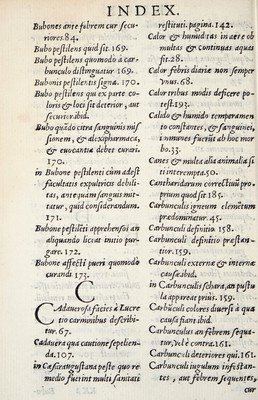 INDEX.
Bubones ante febrem cur secu
riores.84.
Bubo pestilens quid sit. 169.
Bubo pestilens quomodo à car
bunculo distinguatur. 169.
Bubonis pestilentis signa. 170.
Bubo pestilens qui ex parte co
loris & loci sit deterior, aut
securior.ibid.
Bubo quãdo citra sanguinis mis
sionem, & alexipharmaco,
& euocantia debet curari.
170.
in Bubone pestilenti cùm adest
facultatis expultricis debili-
tas, antequam sanguis mit-
tatur, quid considerandum.
171.
Bubone pestilẽti apprehensos an
aliquando liceat initio pur-
gare. 172.
Bubone affecti pueri quomodo
curandi 173.
C
CAdauerosa facies à Lucre
tio carminibus describi-
tur. 67.
Cadauera qua cautione sepelien-
da. 107.
in Cæsaraugustana peste quo re
medio fuerint multi sanitati
restituti. pagina. 142.
Calor & humiditas in aëre ob
multas & continuas aquas
fit. 28.
Calor febris diariæ non semper
vnus. 68.
Calor tribus modis desicere po-
test. 193.
Calido & humido temperamen
to constantes, & sanguinei,
immunes fueriũt ab hoc mor
bo. 33.
Canes & multa alia animalia si
ti interempta. 50.
Cantharidarum correctiuũ pro-
prium quod sit 185.
Carbunculus igneum elementũ
prædominatur. 45.
Carbunculi definitio 158.
Carbunculi definitio præstan-
tior. 159.
Carbunculi externæ & internæ
causæ.ibid.
in Carbunculis eschara, an pustu
la appareat prius. 159.
Carbũculi colores diuersi à qua
causa fiant ibid.
Carbunculus an febrem sequa-
tur, vel è contra. 161.
Carbunculi deteriores qui. 161.
Carbunculi iugulum infestan-
tes, aut febrem sequentes,
cur